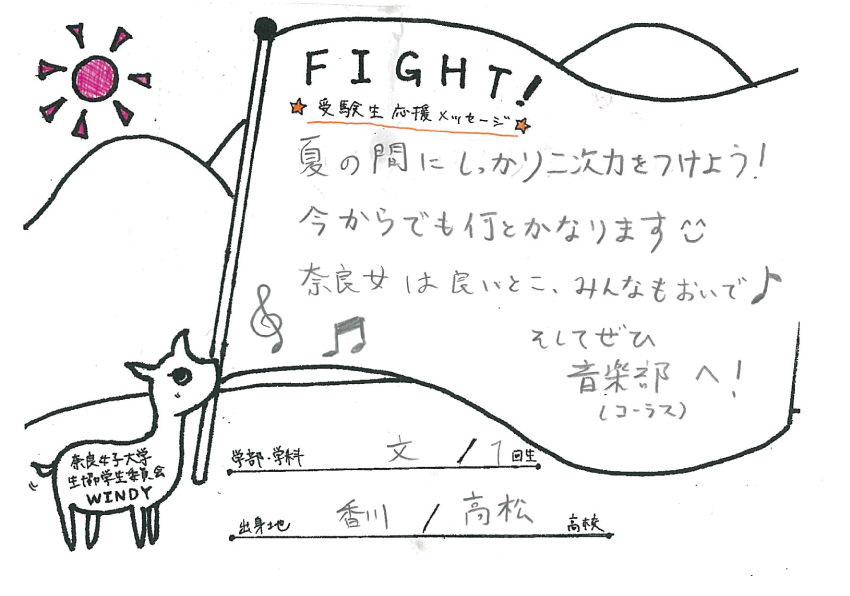 FIGHT!
受験生応援メッセージ
夏の間にしっかり二次力をつけよう!
今からでも何とかなります
奈良女は良いとこ、みんなもおいで♪
そしてぜひ
音楽部へ!
(コーラス)
学部・学科 文 / 1 回生
出身地 香川 / 高松 高校
奈良女子大学
生協学生委員会
WINDY